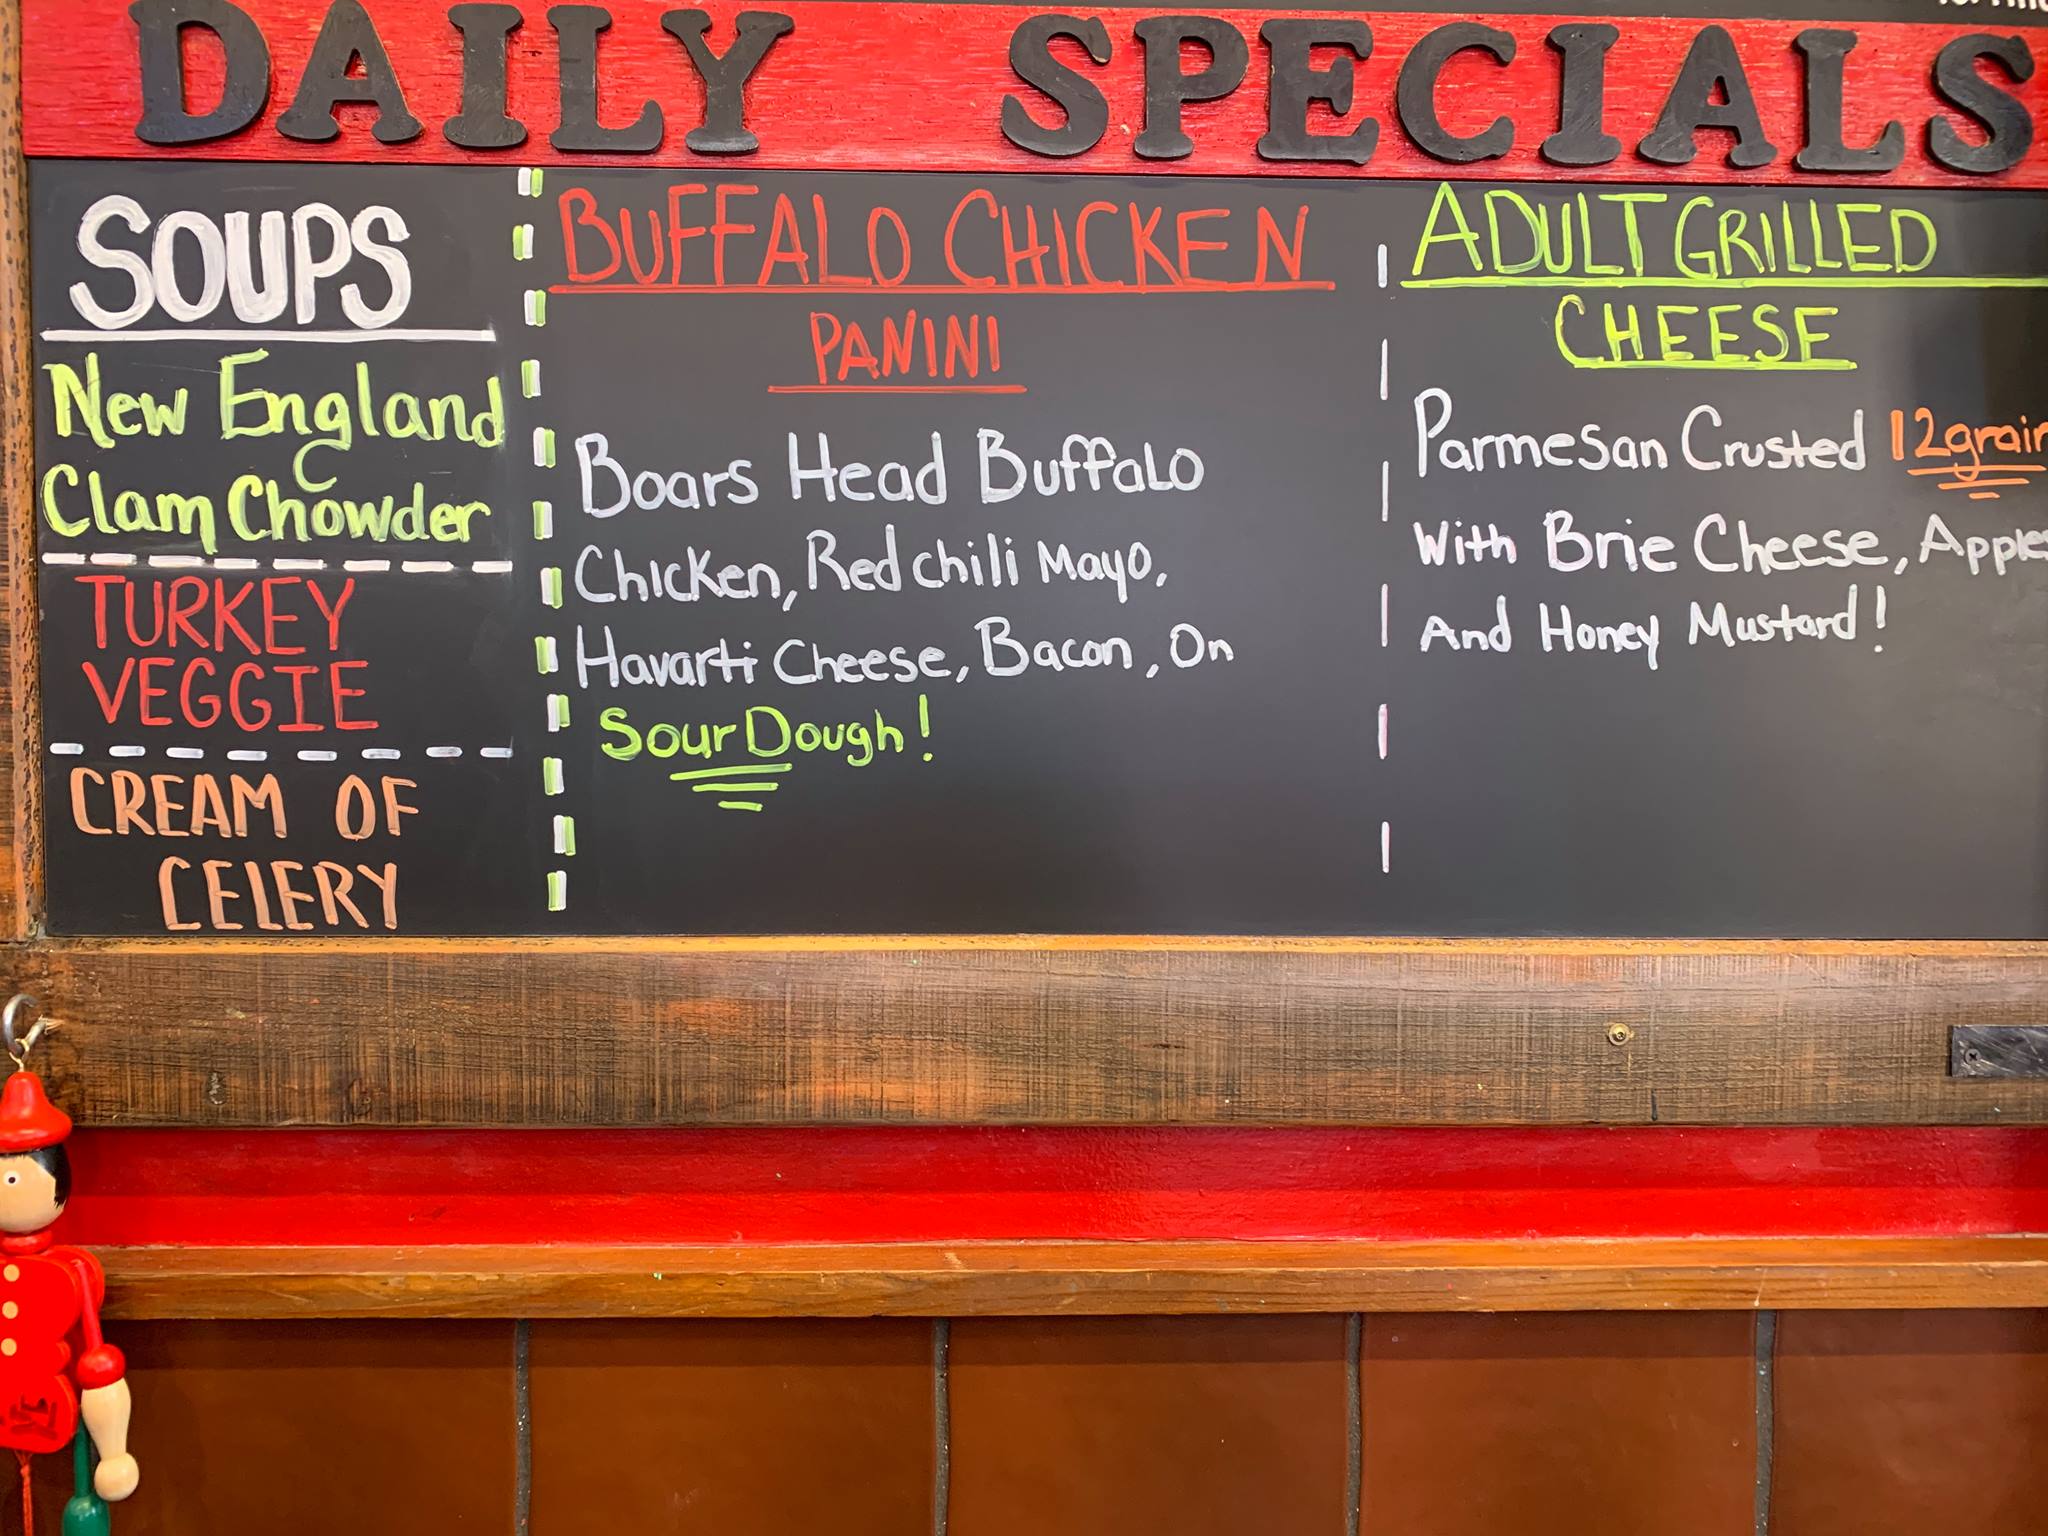 DAILY SPECIALS
SOUPS
New England
Clam Chowder
TURKEY
VEGGIE
CREAM OF
CELERY
BUFFALO CHICKEN
PANINI
Boars Head Buffalo
Chicken, Red chili Mayo,
Havarti Cheese, Bacon, On
Sour Dough!
ADULT GRILLED
CHEESE
Parmesan Crusted 12grain
With Brie Cheese, Apples
And Honey Mustard!